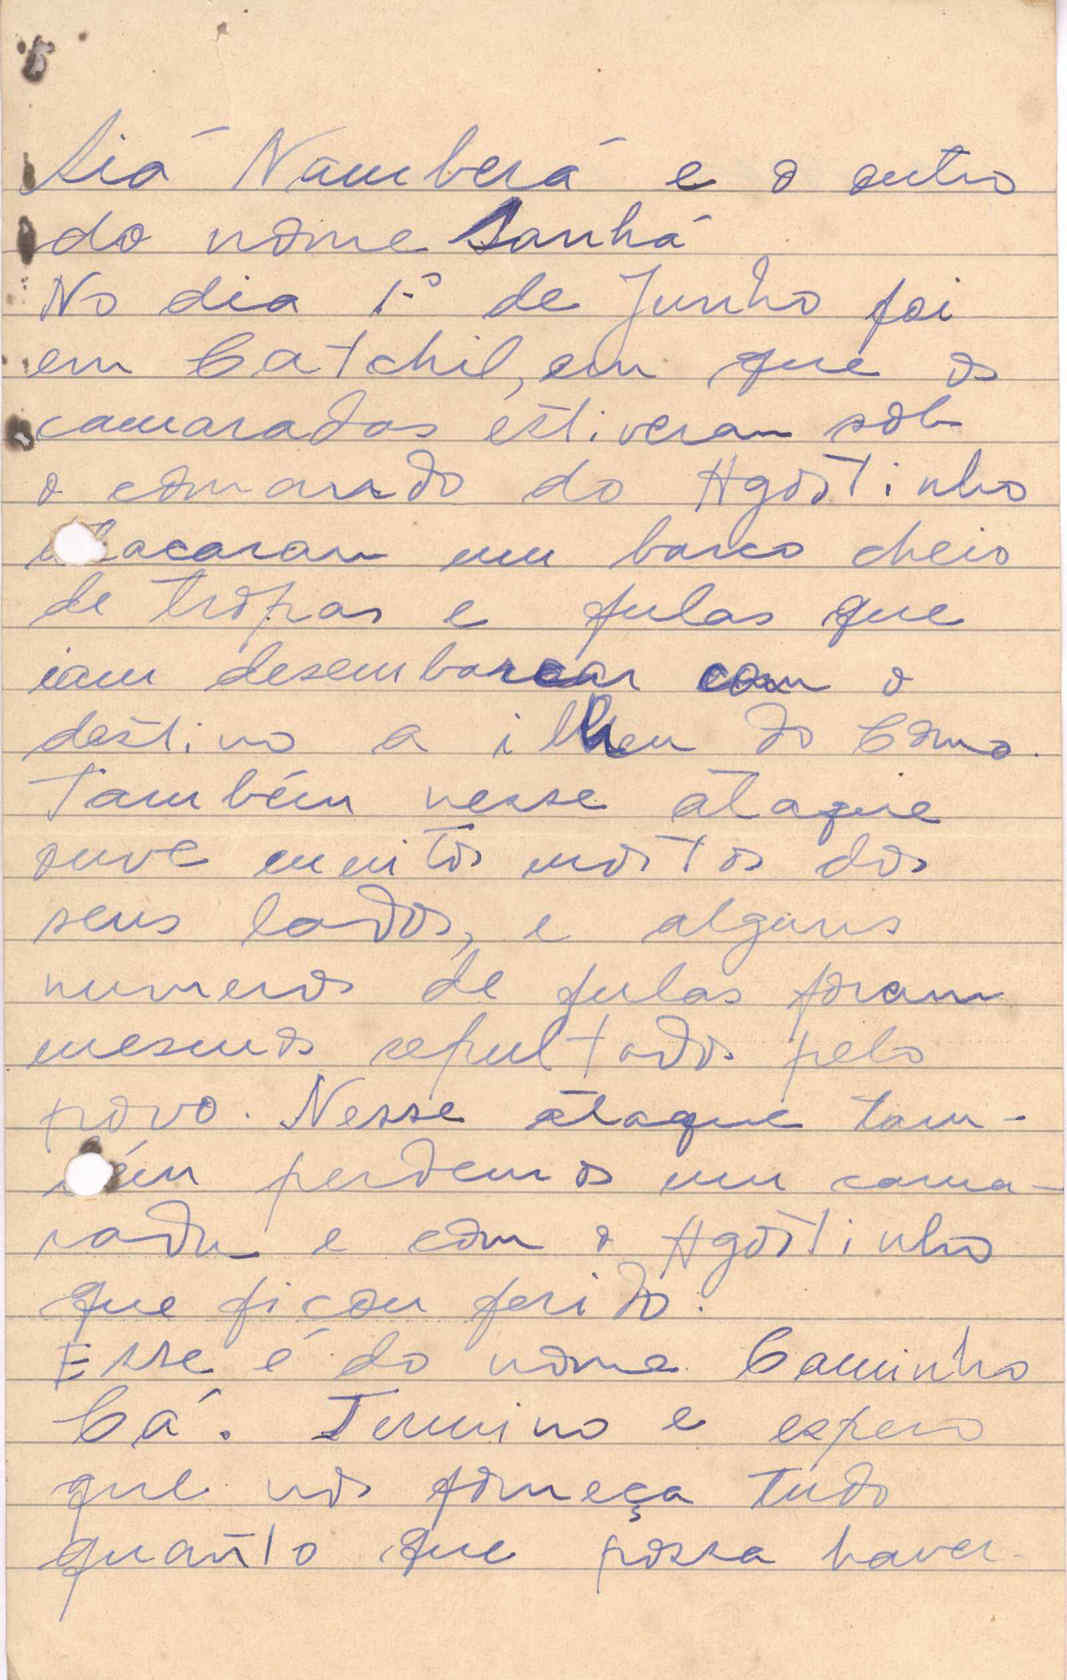 Siá Namberá e o outro
do nome Sanhá
No dia 1º de Junho foi
em Catchil, em que os
camaradas estiveram sob
o comando do Agostinho
atacaram um barco cheio
de tropas e fulas que
iam desembarcar com o
destino a ilheu do Como.
Também nesse ataque
ouve muitos mortos dos
seus lados, e alguns
numeros de fulas foram
mesmos sepultados pelo
povo. Nesse ataque tam-
bém perdemos um cama-
rada e com o Agostinho
que ficou ferido.
Esse é do nome Caminho
Cá. Termino e espero
que nos forneça tudo
quanto que possa haver.